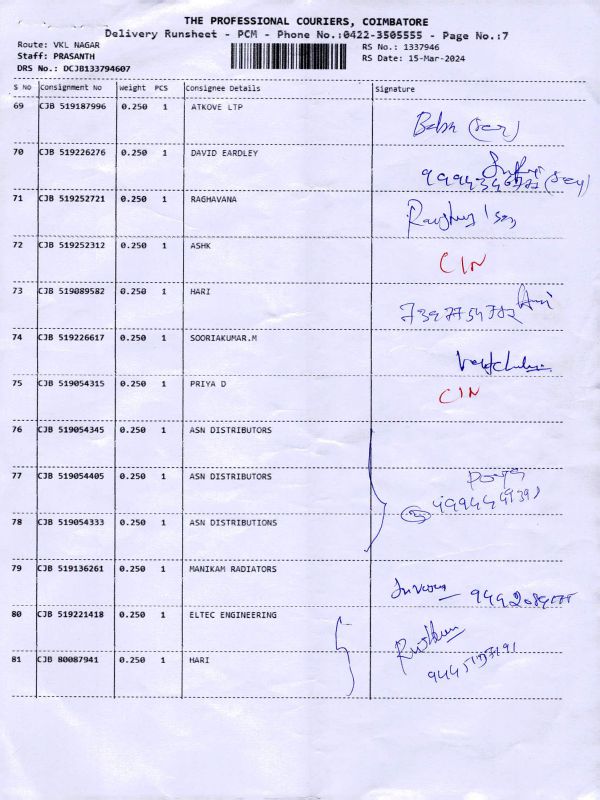 THE PROFESSIONAL COURIERS, COIMBATORE
Delivery Runsheet - PCM - Phone No.:0422-3505555 - Page No.:7
Route: VKL NAGAR
Staff: PRASANTH
DRS No.: DCJB133794607
RS No.: 1337946
RS Date: 15-Mar-2024
S No Consignment No Weight PCS Consignee Details Signature
69 CJB 519187996 0.250 1 ATKOVE LTP
70 CJB 519226276 0.250 1 DAVID EARDLEY
71 CJB 519252721 0.250 1 RAGHAVANA
72 CJB 519252312 0.250 1 ASHK CIN
73 CJB 519089582 0.250 1 HARI
74 CJB 519226617 0.250 1 SOORIAKUMAR.M
75 CJB 519054315 0.250 1 PRIYA D CIN
76 CJB 519054345 0.250 1 ASN DISTRIBUTORS
77 CJB 519054405 0.250 1 ASN DISTRIBUTORS
78 CJB 519054333 0.250 1 ASN DISTRIBUTIONS
79 CJB 519136261 0.250 1 MANIKAM RADIATORS
80 CJB 519221418 0.250 1 ELTEC ENGINEERING
81 CJB 80087941 0.250 1 HARI